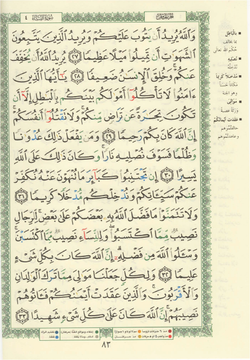 وَاللَّهُ يُرِيدُ أَن يَتُوبَ عَلَيْكُمْ وَيُرِيدُ الَّذِينَ يَتَّبِعُونَ
الشَّهَوَاتِ أَن تَمِيلُوا مَيْلًا عَظِيمًا ٢٧ يُرِيدُ اللَّهُ أَن يُخَفِّفَ
عَنكُمْ وَخُلِقَ الْإِنسَانُ ضَعِيفًا ٢٨ يَا أَيُّهَا الَّذِينَ
آمَنُوا لَا تَأْكُلُوا أَمْوَالَكُم بَيْنَكُم بِالْبَاطِلِ إِلَّا أَن
تَكُونَ تِجَارَةً عَن تَرَاضٍ مِّنكُمْ وَلَا تَقْتُلُوا أَنفُسَكُمْ
إِنَّ اللَّهَ كَانَ بِكُمْ رَحِيمًا ٢٩ وَمَن يَفْعَلْ ذَٰلِكَ عُدْوَانًا
وَظُلْمًا فَسَوْفَ نُصْلِيهِ نَارًا وَكَانَ ذَٰلِكَ عَلَى اللَّهِ
يَسِيرًا ٣٠ إِن تَجْتَنِبُوا كَبَائِرَ مَا تُنْهَوْنَ عَنْهُ نُكَفِّرْ
عَنكُمْ سَيِّئَاتِكُمْ وَنُدْخِلْكُم مُّدْخَلًا كَرِيمًا ٣١
وَلَا تَتَمَنَّوْا مَا فَضَّلَ اللَّهُ بِهِ بَعْضَكُمْ عَلَىٰ بَعْضٍ لِّلرِّجَالِ
نَصِيبٌ مِّمَّا اكْتَسَبُوا وَلِلنِّسَاءِ نَصِيبٌ مِّمَّا اكْتَسَبْنَ
وَاسْأَلُوا اللَّهَ مِن فَضْلِهِ إِنَّ اللَّهَ كَانَ بِكُلِّ شَيْءٍ
عَلِيمًا ٣٢ وَلِكُلٍّ جَعَلْنَا مَوَالِيَ مِمَّا تَرَكَ الْوَالِدَانِ
وَالْأَقْرَبُونَ وَالَّذِينَ عَقَدَتْ أَيْمَانُكُمْ فَآتُوهُمْ
نَصِيبَهُمْ إِنَّ اللَّهَ كَانَ عَلَىٰ كُلِّ شَيْءٍ شَهِيدًا ٣٣
٨٣